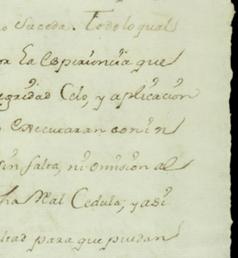 suceda. Todo lo qual
la Experiencia que
Zelo, y aplicacion
executaran con in
sin falta, ni omision al
Real Cedula; y asi
para que puedan